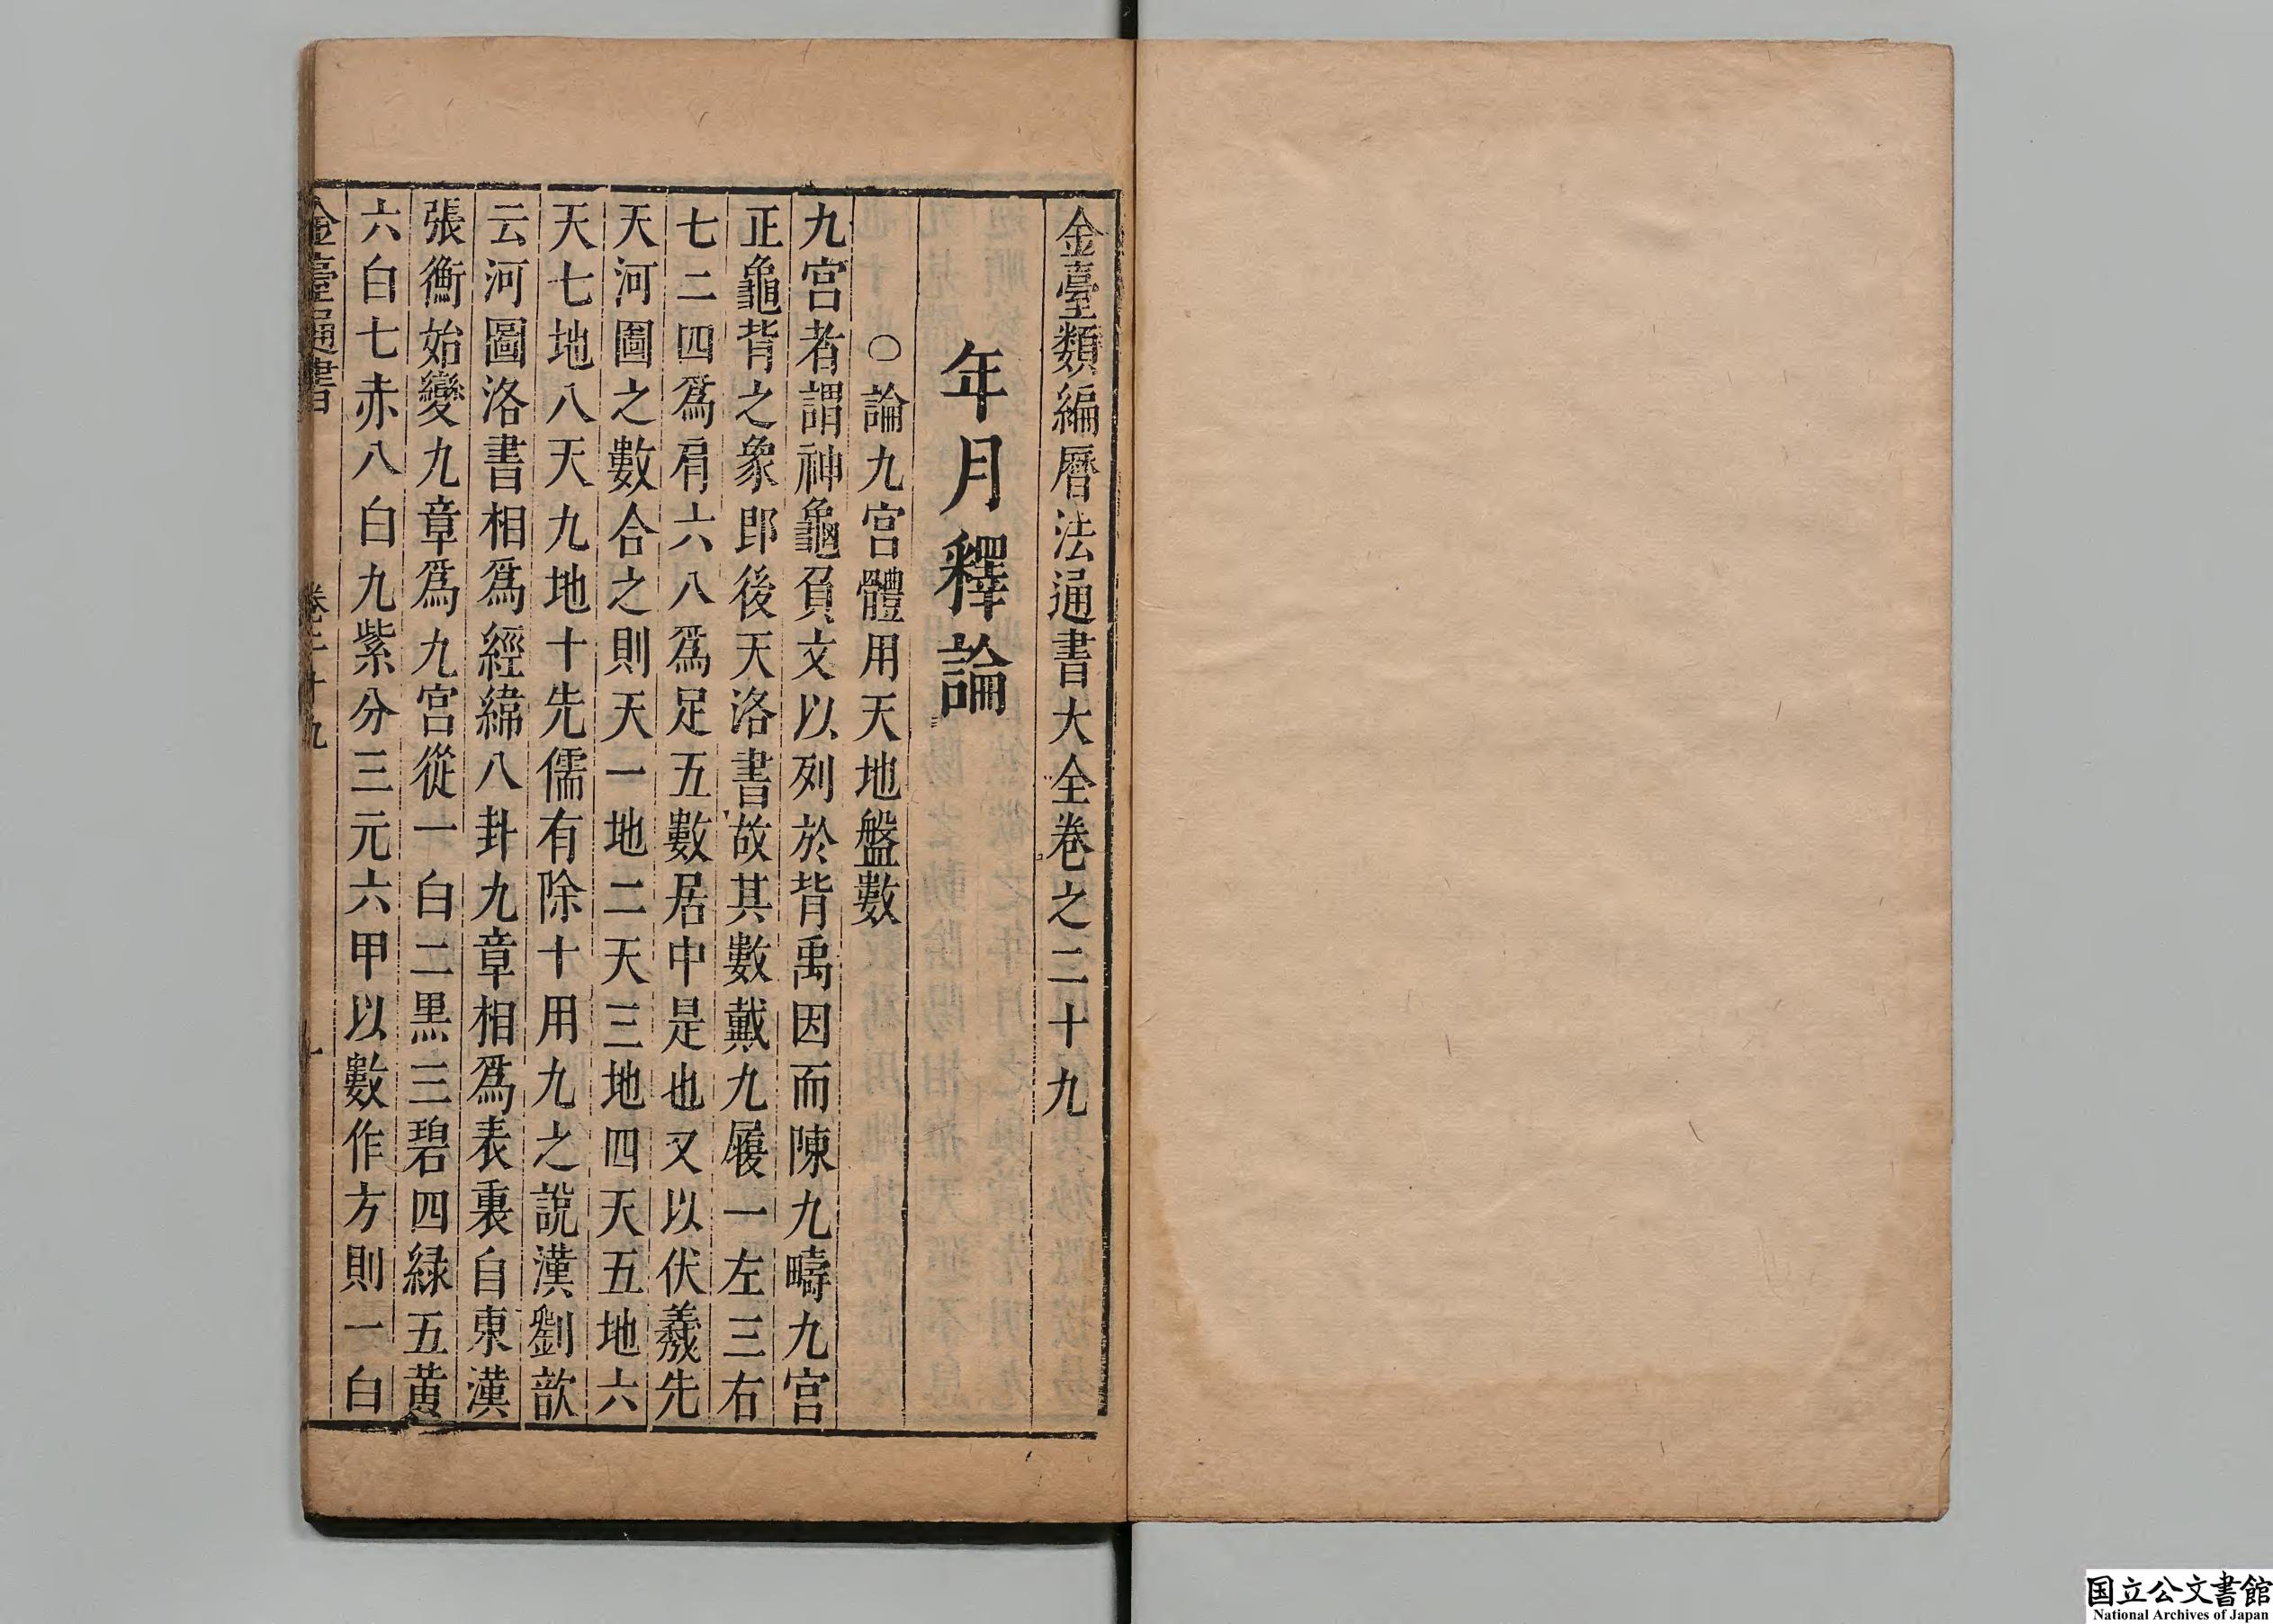 金臺類編曆法通書大全卷之二十九
年月釋論
○論九宮體用天地盤數
九宮者謂神龜負文以列於背禹因而陳九疇九宮
正龜背之象即後天洛書故其數戴九履一左三右
七二四爲肩六八爲足五數居中是也又以伏羲先
天河圖之數合之則天一地二天三地四天五地六
天七地八天九地十先儒有除十用九之說漢劉歆
云河圖洛書相爲經緯八卦九章相爲表裏自東漢
張衡始變九章爲九宮從一白二黑三碧四綠五黃
六白七赤八白九紫分三元六甲以數作方則一白
金臺通書 卷二十九 一
国立公文書館
National Archives of Japan